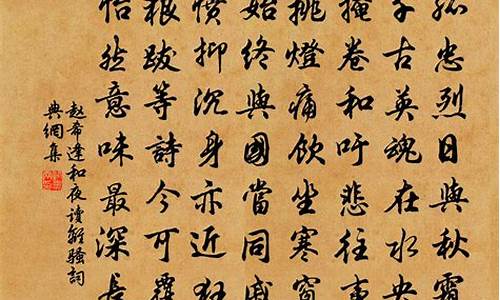 孤忠烈日與秋霜
千古英魂在水央
掩卷和吁悲往事
挑燈痛飲坐寒窗
始終與國當同戚
憤抑沉身亦近狂
狼跋等詩今可覆
怡然意味最深長
趙希逢和夜讀離騷詞
典網集